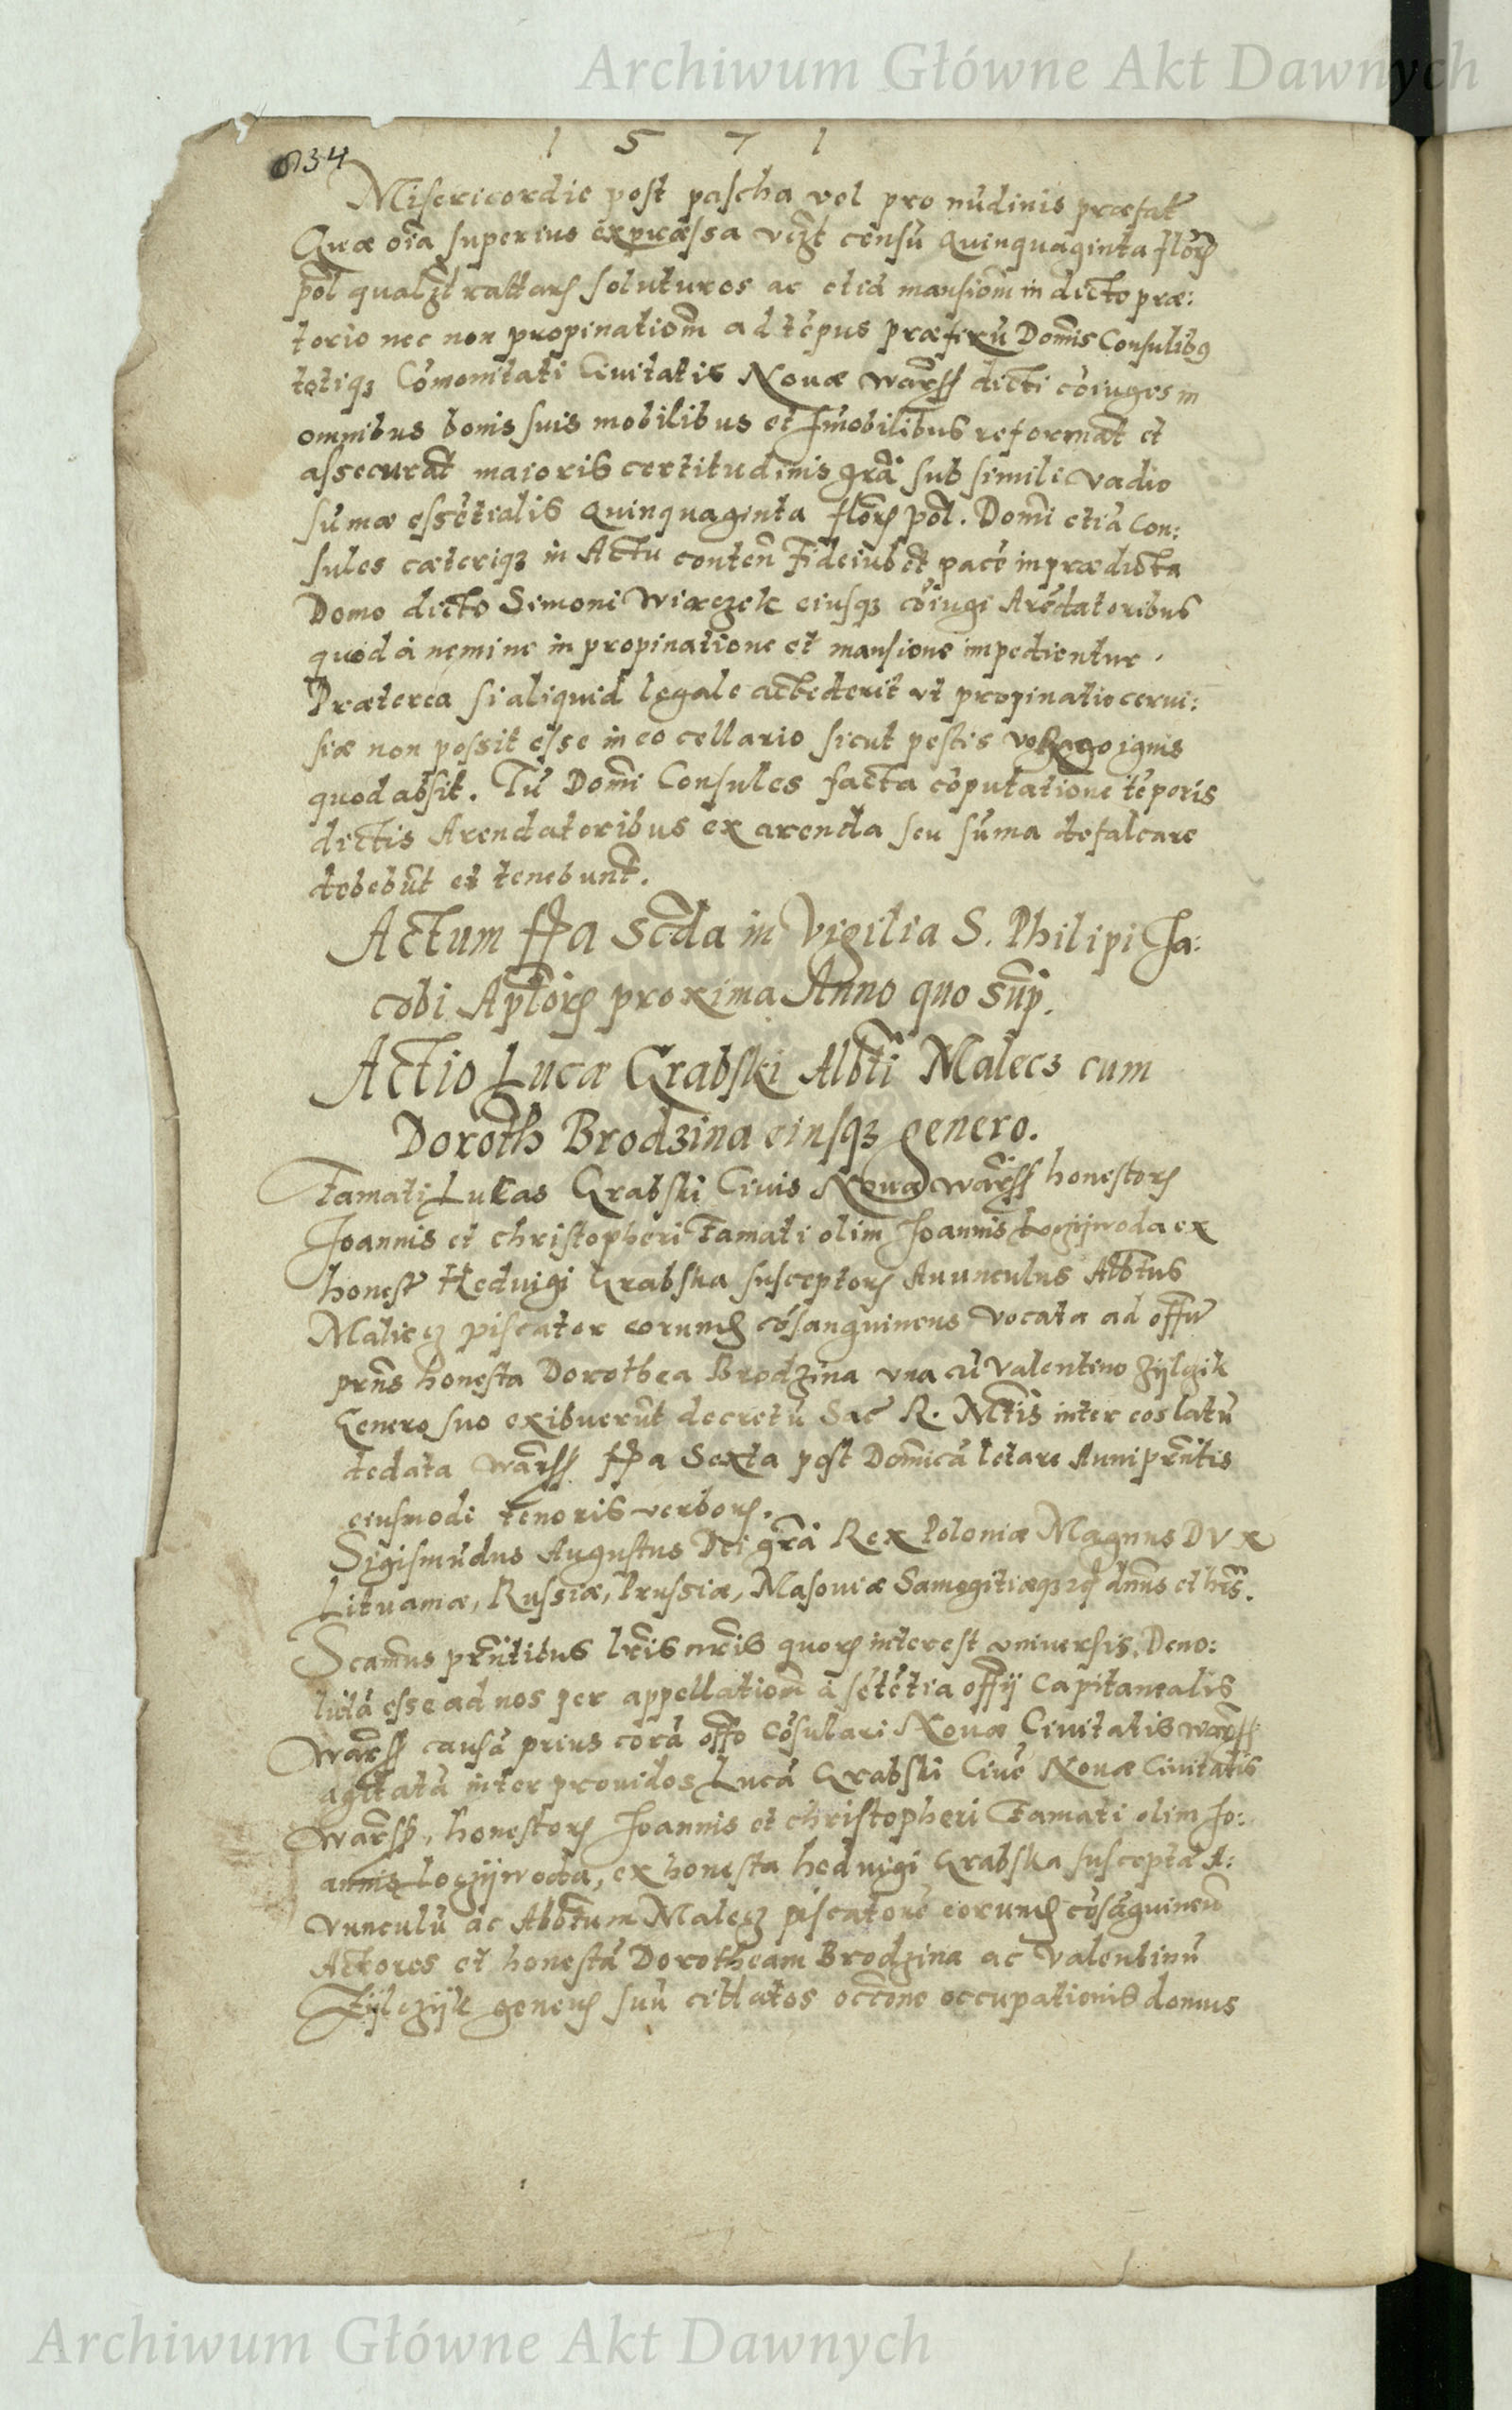 Archiwum Główne Akt Dawnych
1 5 7 1
834
Misericordie post pascha vel pro nudinis præfat
Quæ oia superius expræssa vczt censu Quinquaginta flor
pol qualzt rattar soluturos ac etia mansiom in dicto præ:
torio nec non propinatiom ad tepus Domis Consulibq
totiqz Comonitati Ciuitatis Nouæ Warss dicti coiuges in
omnibus bonis suis mobilibus et Imobilibus reformat et
assecurat maioris certitudinis gra sub simili vadio
sumæ essetialis Quinquaginta flor pol. Domi etia Con:
sules cæteriqz in Actu conten Fideiubet pace in prædicta
Domo dicto Simoni Wiæczek eiusqz coiugi Aredatoribus
quod à nemine in propinatione et mansione impedientur.
Præterea si aliquid legale accederit vt propinatio cerui:
siæ non possit esse in eo cellario sicut pestis ignis
quod absit. Tu Domi Consules facta coputatione teporis
dictis Arendatoribus ex arenda seu suma defalcare
debebut et tenebunt.
Actum ffa Scda in Vigilia S. Philipi Ja:
cobi Aplor proxima Anno quo sup.
Actio Lucæ Grabski Albti Malecz cum
Doroth Brodzina eiusqz genero.
Famati Lucas Grabski Ciuis Nouæ Warss honestor
Joannis et christopheri Famati olim Joannis Loczijwoda ex
honest Heduigi Grabska susceptor Auunculus Albtus
Maliecz piscator eorumd cosanguineus vocata ad offm
prns honesta Dorothea Brodzina vna cu Valentino Zijlczik
Genero suo exibuerut decretu Sac R. Mtis inter eos latu
dedata Warss ffa Sexta post Domica letare Anni prntis
eiusmodi tenoris verbor.
Sigismudus Augustus Dei gra Rex Poloniæ Magnus DVx
Lituaniæ, Russiæ, Prussiæ, Masouiæ Samogitiæqz zc dnns et hrs.
Scamus prntibus lris nris quor interest vniuersis. Deuo:
luta esse ad nos per appellatiom à setetia offij Capitanealis
Warss causa prius cora offo Cosulari Nouæ Ciuitatis Warss.
agitata inter prouidos Luca Grabski Ciue Nouæ Ciuitatis
Warss, honestor Joannis et christopheri Famati olim Jo:
annis Loczijwoda, ex honesta heduigi Grabska suscepta A:
vunculu ac Albtum Malecz piscatore eorumd cosaguineu
Actores et honesta Dorotheam Brodzina ac Valentinu
Zijlczijk gener suu cittatos occone occupationis domus
Archiwum Główne Akt Dawnych